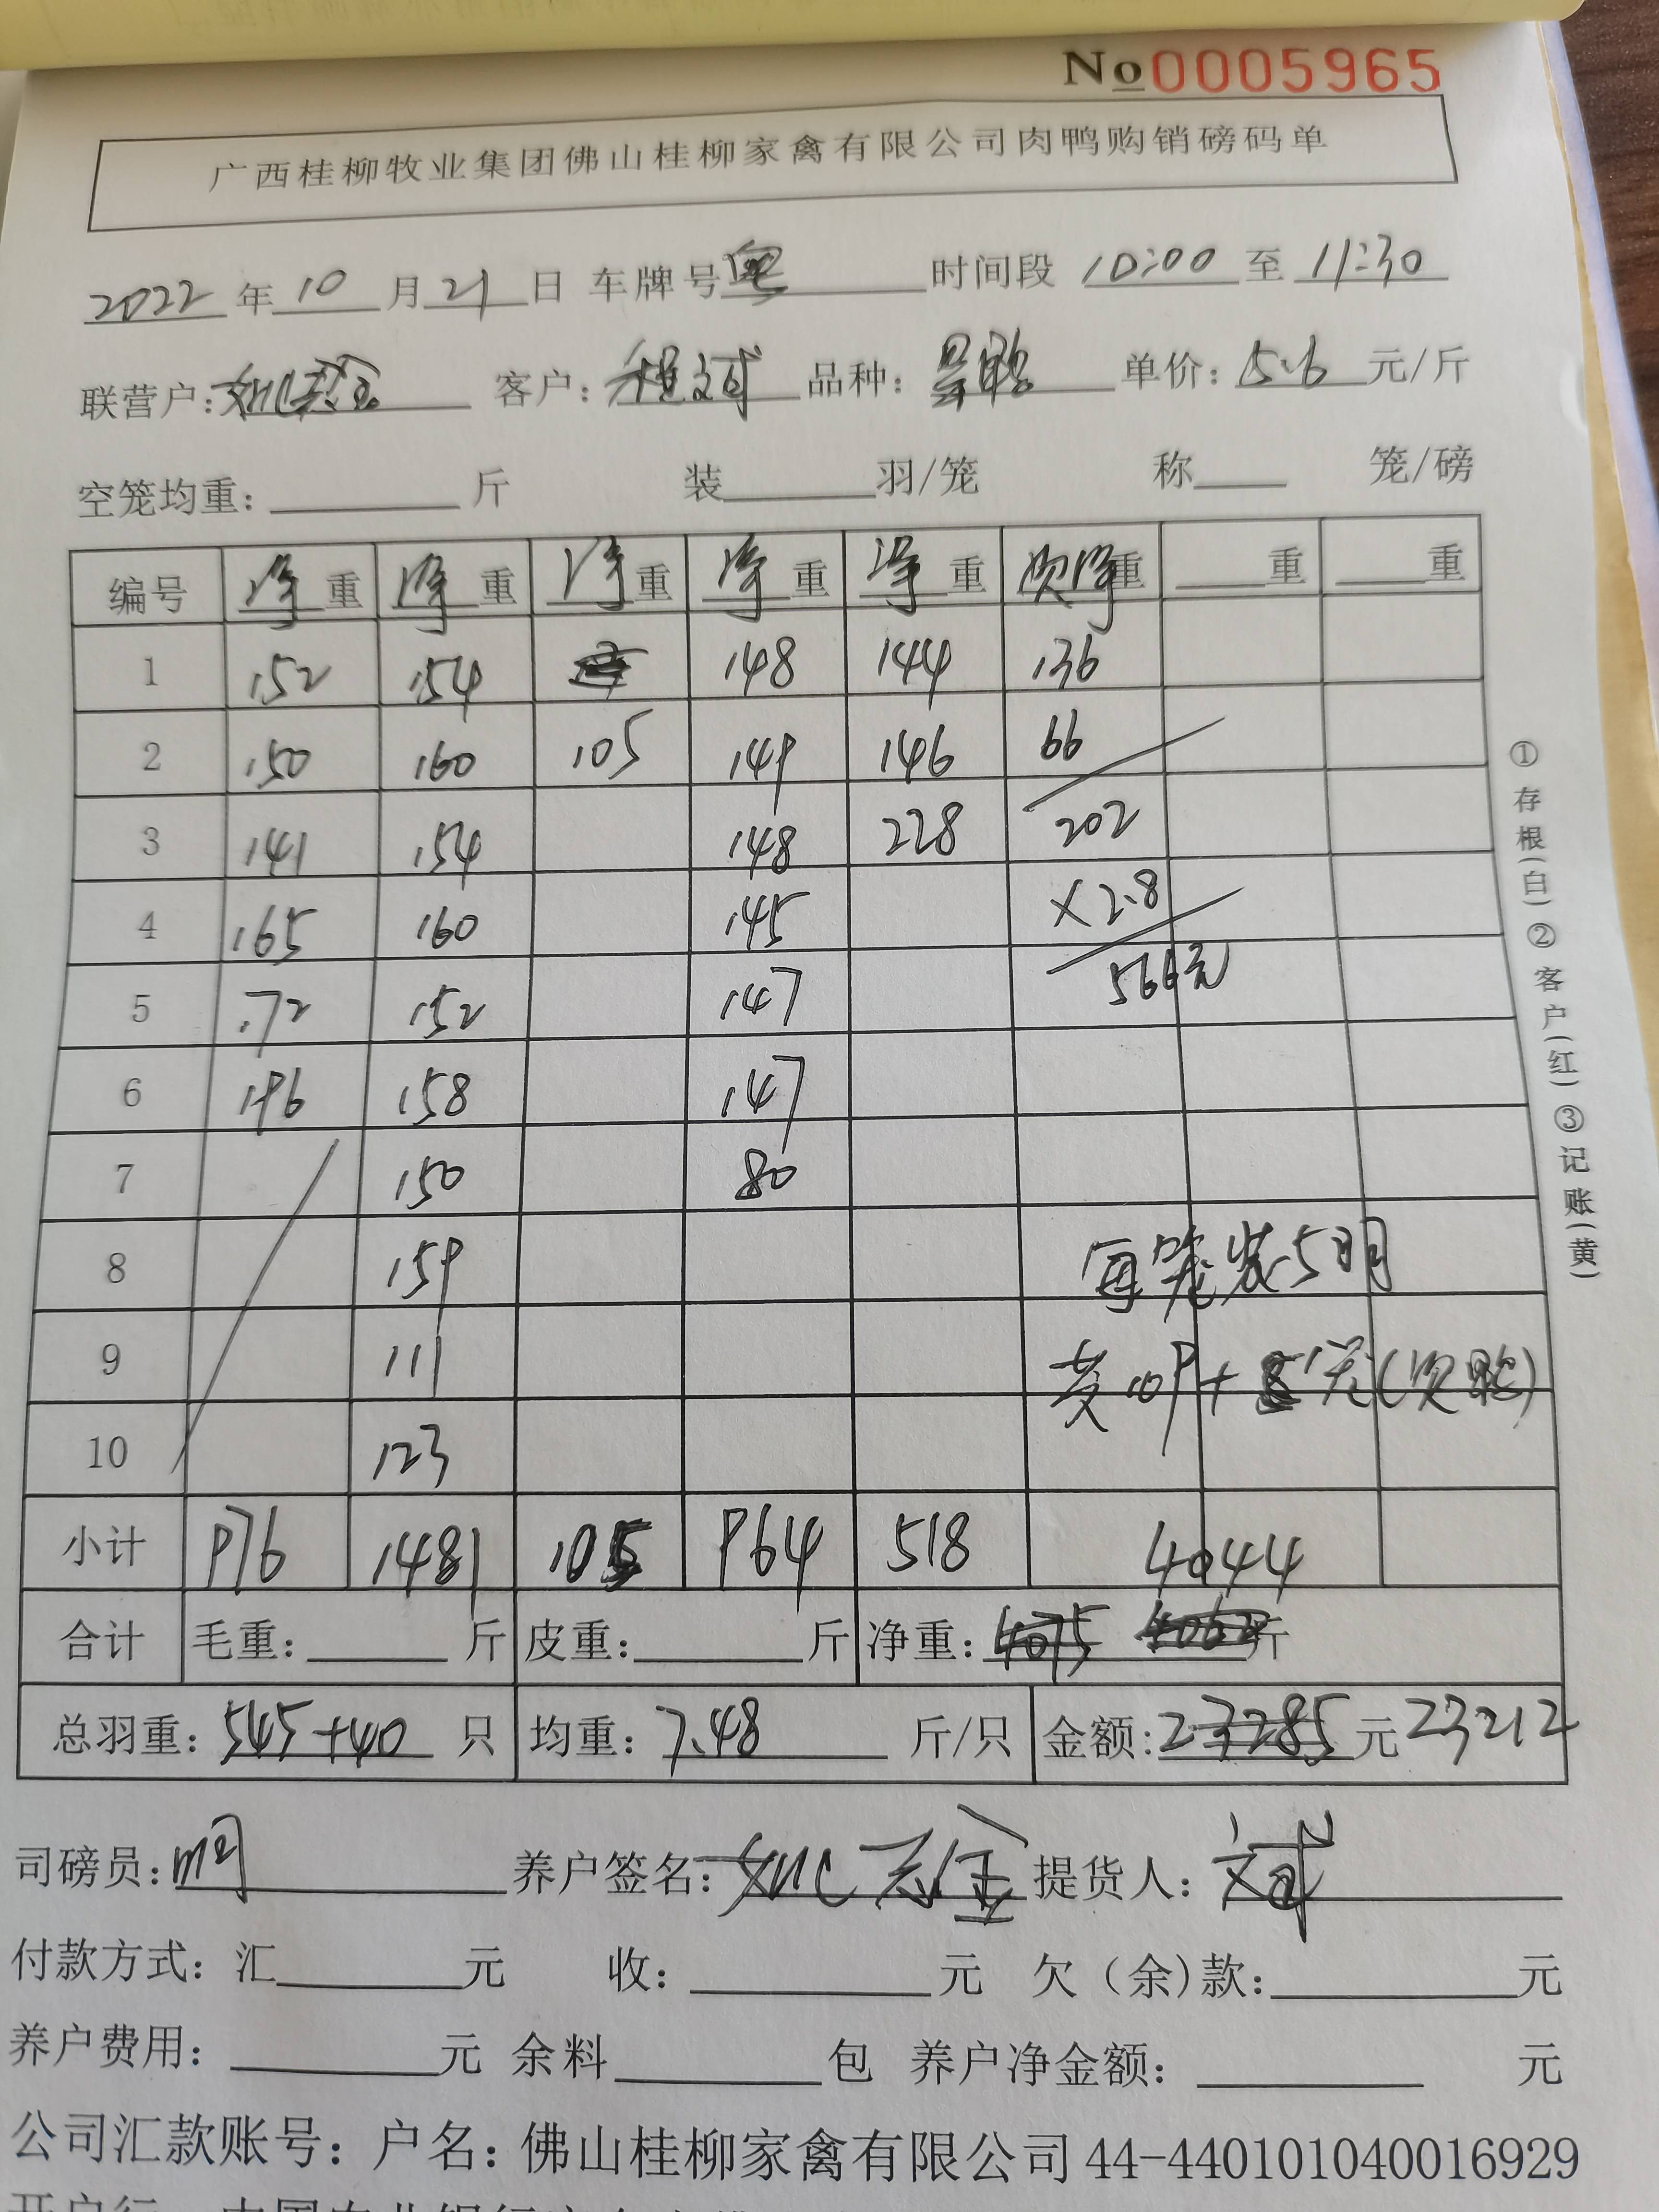 No0005965
广西桂柳牧业集团佛山桂柳家禽有限公司肉鸭购销磅码单
2022年10月21日 车牌号粤 时间段 10:00 至 11:30
联营户: 客户:程文斌 品种: 单价:5.6元/斤
空笼均重:____斤 装____羽/笼 称____笼/磅
编号 净重 净重 净重 净重 净重 次净重 ____重 ____重
1 152 154 148 144 136
2 150 160 105 149 146 66
3 141 154 148 228 202
4 165 160 145 ×2.8
5 172 152 147 566元
6 196 158 147
7 150 80
8 159 每笼装5只
9 111
10 123
小计 976 1481 105 964 518 4044
合计 毛重:____斤 皮重:____斤 净重:4075 斤
总羽重:545+40只 均重:7.48斤/只 金额:23285元 23212
①存根(白)②客户(红)③记账(黄)
司磅员: 养户签名: 提货人:文斌
付款方式:汇____元 收:____元 欠(余)款:____元
养户费用:____元 余料____包 养户净金额:____元
公司汇款账号:户名:佛山桂柳家禽有限公司 44-440101040016929